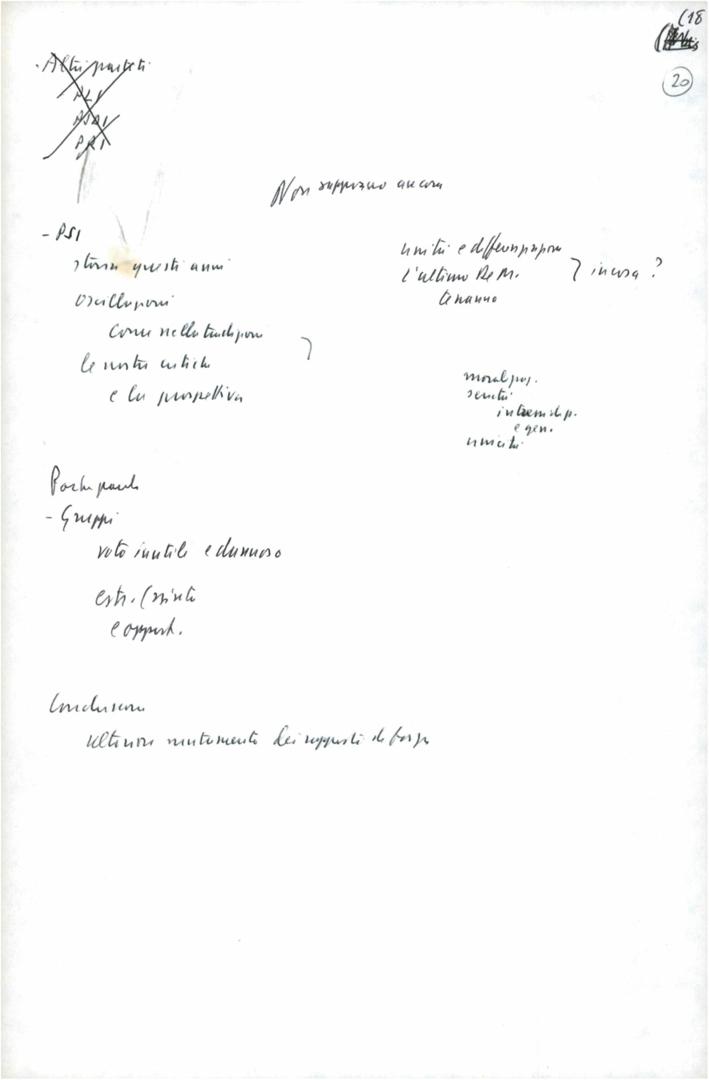 (18
20
- Altri partiti
PLI
PSDI
PRI
Non sappiamo ancora
- PSI
storia questi anni
oscillazioni
come nella tradizione
le nostre critiche
e la prospettiva
unità e differenziazione
l'ultimo De M.
} in cosa?
moralizzaz.
serietà
interdip.
e gen.
unicità
Poche parole
- Gruppi
voto inutile e dannoso
estr. (sinistr
e opport.
Conclusione
ulteriore mutamento dei rapporti di forza